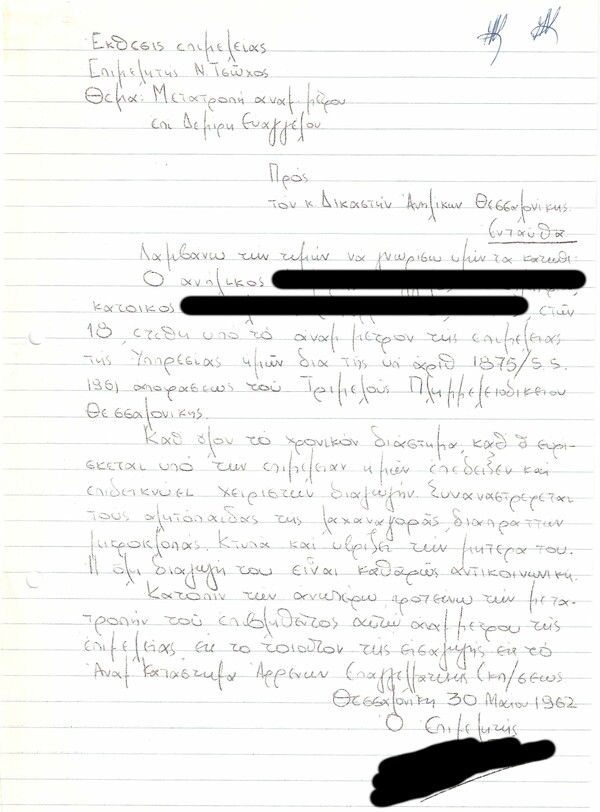 Εκθεσις επιμελειας
Επιμελητης Ν. Τσωχος
Θεμα: Μετατροπή αναμ. μέτρου
επι Δεμιρη Ευαγγελου
Πρός
τον κ. Δικαστήν Ανηλίκων Θεσσαλονίκης.
Ενταύθα
Λαμβανω την τιμήν να γνωρίσω υμίν τα κατωθι:
Ο ανήλικος
κατοικος ετών
18, ετεθη υπο τό αναμ μετρον της επιμελειας
της Υπηρεσιας ημών δια της υπ αριθ 1875/5.5.
1961 αποφασεως τού Τριμελούς Πλημμελειοδικειου
Θεσσαλονικης.
Καθ όλον τό χρονικόν διάστημα, καθ ό ευρι-
σκεται υπό την επιμέλειαν ημών επεδειξεν και
επιδεικνύει χειρίστην διαγωγήν. Συναναστρέφεται
τους αλητόπαιδας της λαχαναγοράς, διαπραττων
μικροκλοπάς. Κτυπα και υβρίζει την μητερα του.
Η όλη διαγωγή του είναι καθαρώς αντικοινωνική.
Κατόπιν των ανωτέρω προτείνω την μετα-
τροπήν τού επιβληθέντος αύτω αναμ μετρου της
επιμελειας εις το τοιούτον της εισαγωγής εις τό
Αναμ Κατάστημα Αρρενων
Θεσσαλονίκη 30 Μαιου 1962
Ο Επιμελητής